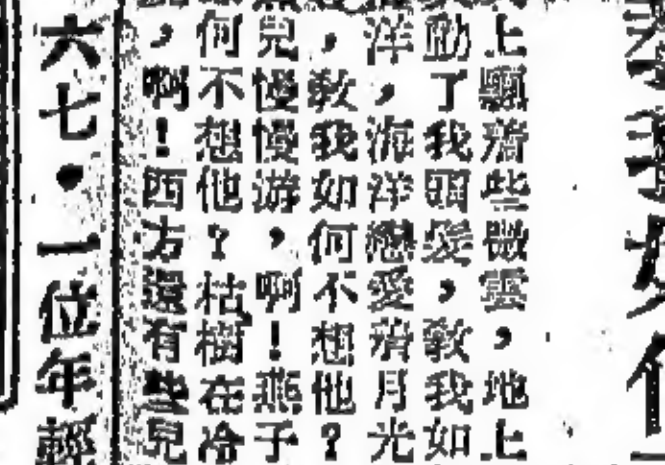 上飄着些微雲，地上
動了我頭髮，教我如
洋，海洋戀愛着月光
，教我如何不想他？
兒慢慢游，啊！燕子
何不想他？枯樹在冷
，啊！西方還有些兒
六七・一位年輕